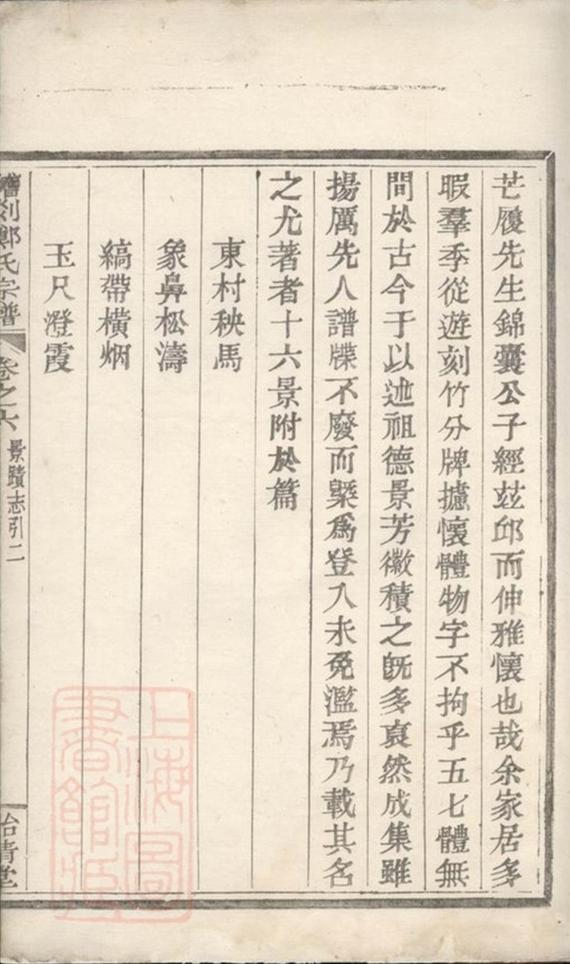 芒履先生錦囊公子經玆邱而伸雅懷也哉余家居多
暇羣季從遊刻竹分牌攄懷體物字不拘乎五七體無
間於古今于以述祖德景芳徽積之旣多裒然成集雖
揚厲先人譜牒不廢而槩爲登入未免濫焉乃載其名
之尤著者十六景附於篇
東村秧馬
象鼻松濤
縞帶橫烟
玉尺澄霞
剡鄭氏宗譜
卷之六
景蹟志引二
怡靑堂
上海圖
書館藏